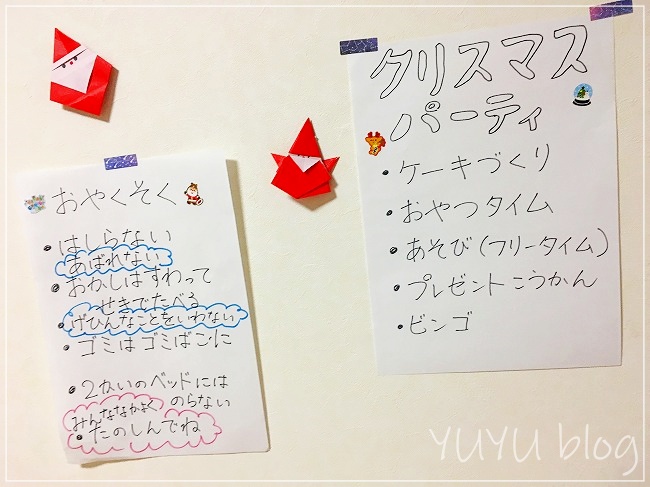 おやくそく
・はしらない
あばれない
・おかしはすわって
せきでたべる
・げひんなことをいわない
・ゴミはゴミばこに
・2かいのベッドには
のらない
みんななかよく
・たのしんでね
クリスマス
パーティ
・ケーキづくり
・おやつタイム
・あそび(フリータイム)
・プレゼントこうかん
・ビンゴ
YUYU blog